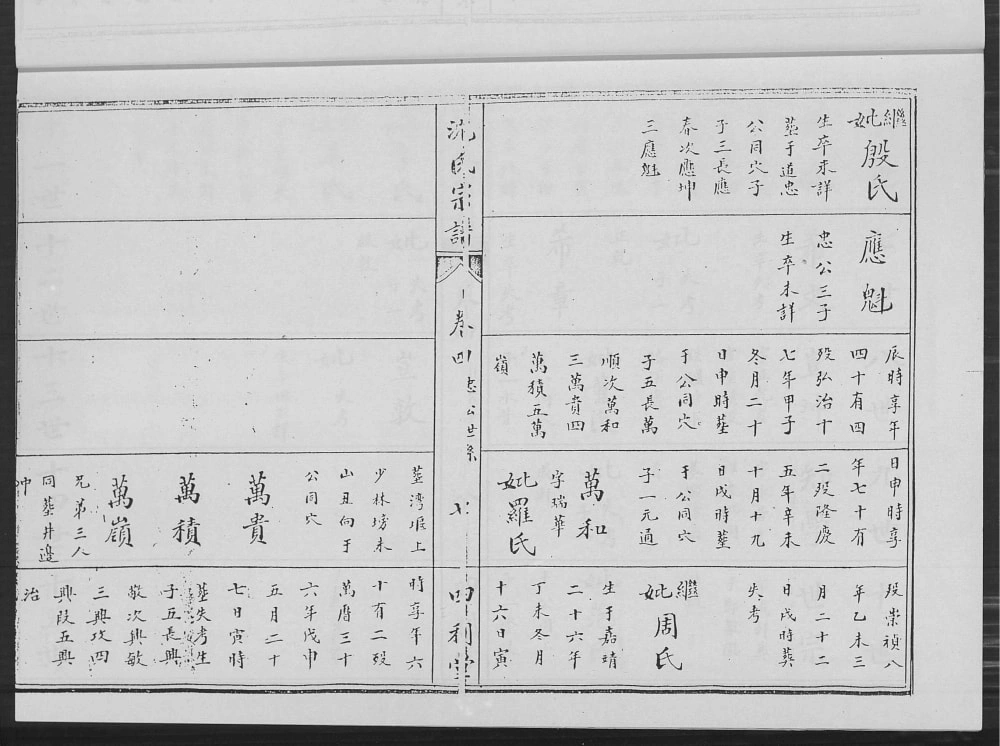 繼妣殷氏
生卒未詳
塟于道忠
公同穴子
子三長應
春次應坤
三應魁
應魁
忠公三子
生卒未詳
辰時享年
四十有四
殁弘治十
七年甲子
冬月二十
日申時塟
于公同穴
子五長萬
順次萬和
三萬貴四
萬積五萬
嶺
日申時享
年七十有
二殁隆慶
五年辛未
十月十九
日戌時塟
于公同穴
子一元通
萬和
字瑞華
妣羅氏
殁崇禎八
年乙未三
月二十二
日戌時葬
失考
繼妣周氏
生于嘉靖
二十六年
丁未冬月
十六日寅
沈氏宗譜
卷四
忠公世系
七
四利堂
塟湾堰上
少林塝未
山丑向于
公同穴
萬貴
萬積
萬嶺
兄弟三人
同葬井邊
冲
時享年六
十有二殁
萬曆三十
六年戊申
五月二十
七日寅時
塟失考生
子五長興
敬次興敏
三興攻四
興段五興
治